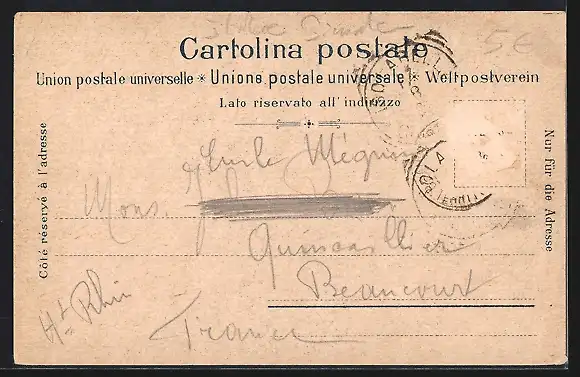 5.€
Cartolina postale
Union postale universelle * Unione postale universale * Weltpostverein
Lato riservato all' indirizzo
Côté réservé à l'adresse
Nur für die Adresse
Mons.
Quincaillier
Beaucourt
Ht Rhin
France